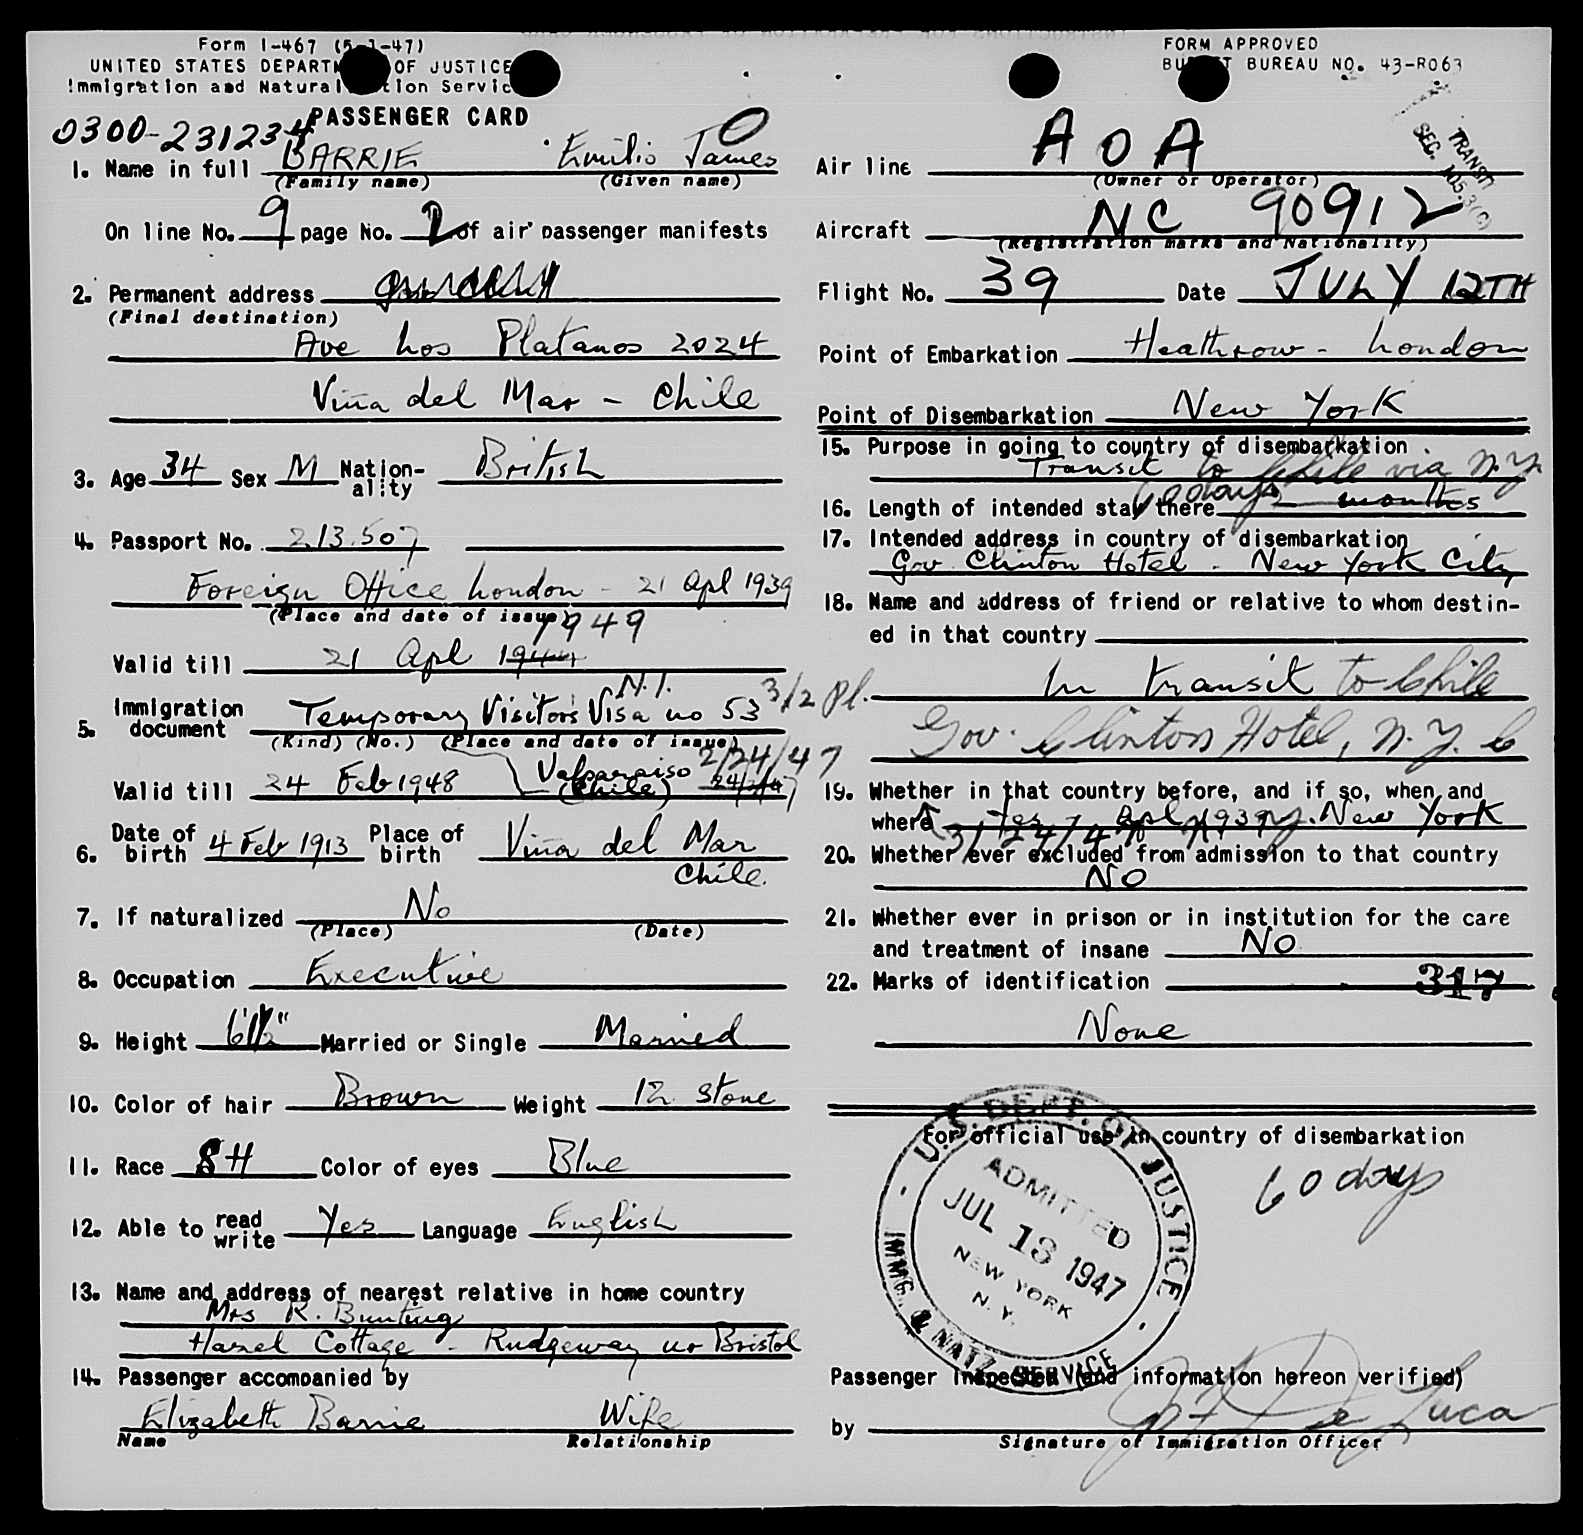 Form I-467 (5-1-47)
UNITED STATES DEPARTMENT OF JUSTICE
Immigration and Naturalization Service
PASSENGER CARD
0300-231234
1. Name in full BARRIE Emilio James
(Family name) (Given name)
On line No. 9 page No. 2 of air passenger manifests
2. Permanent address
(Final destination)
Ave Los Platanos 2024
Viña del Mar - Chile
3. Age 34 Sex M Nationality British
4. Passport No. 213.507
Foreign Office London - 21 Apl 1939
(Place and date of issue)
1949
Valid till 21 Apl
N.I.
5. Immigration document Temporary Visitors Visa no 53 3/2 Pl.
(Kind) (No.) (Place and date of issue)
2/24/47
Valid till 24 Feb 1948 Valparaiso (Chile) 24/2/47
6. Date of birth 4 Feb 1913 Place of birth Viña del Mar
Chile.
7. If naturalized No
(Place) (Date)
8. Occupation Executive
9. Height 6'1½" Married or Single Married
10. Color of hair Brown Weight 12 stone
11. Race SH Color of eyes Blue
12. Able to read write Yes Language English
13. Name and address of nearest relative in home country
Mrs R. Bunting
Hazel Cottage - Rudgeway nr Bristol
14. Passenger accompanied by
Elizabeth Barrie Wife
Name Relationship
FORM APPROVED
BUDGET BUREAU NO. 43-R063
TRANSIT
SEC. 105.3(c)
Air line AOA
(Owner or Operator)
Aircraft NC 90912
(Registration marks and Nationality)
Flight No. 39 Date JULY 12TH
Point of Embarkation Heathrow - London
Point of Disembarkation New York
15. Purpose in going to country of disembarkation
Transit to Chile via N.Y.
16. Length of intended stay there 60 days 2 months
17. Intended address in country of disembarkation
Gov. Clinton Hotel - New York City
18. Name and address of friend or relative to whom destined in that country
In transit to Chile
Gov. Clinton Hotel, N.Y.C
19. Whether in that country before, and if so, when and
where Yes - Apl 1939 New York
3/24/47 N.Y.
20. Whether ever excluded from admission to that country
NO
21. Whether ever in prison or in institution for the care
and treatment of insane NO
22. Marks of identification 317
None
For official use in country of disembarkation
60 days
U.S. DEPT. OF JUSTICE
ADMITTED
JUL 13 1947
NEW YORK
N.Y.
IMMG. & NATZ. SERVICE
Passenger Inspected (and information hereon verified)
by De Luca
Signature of Immigration Officer